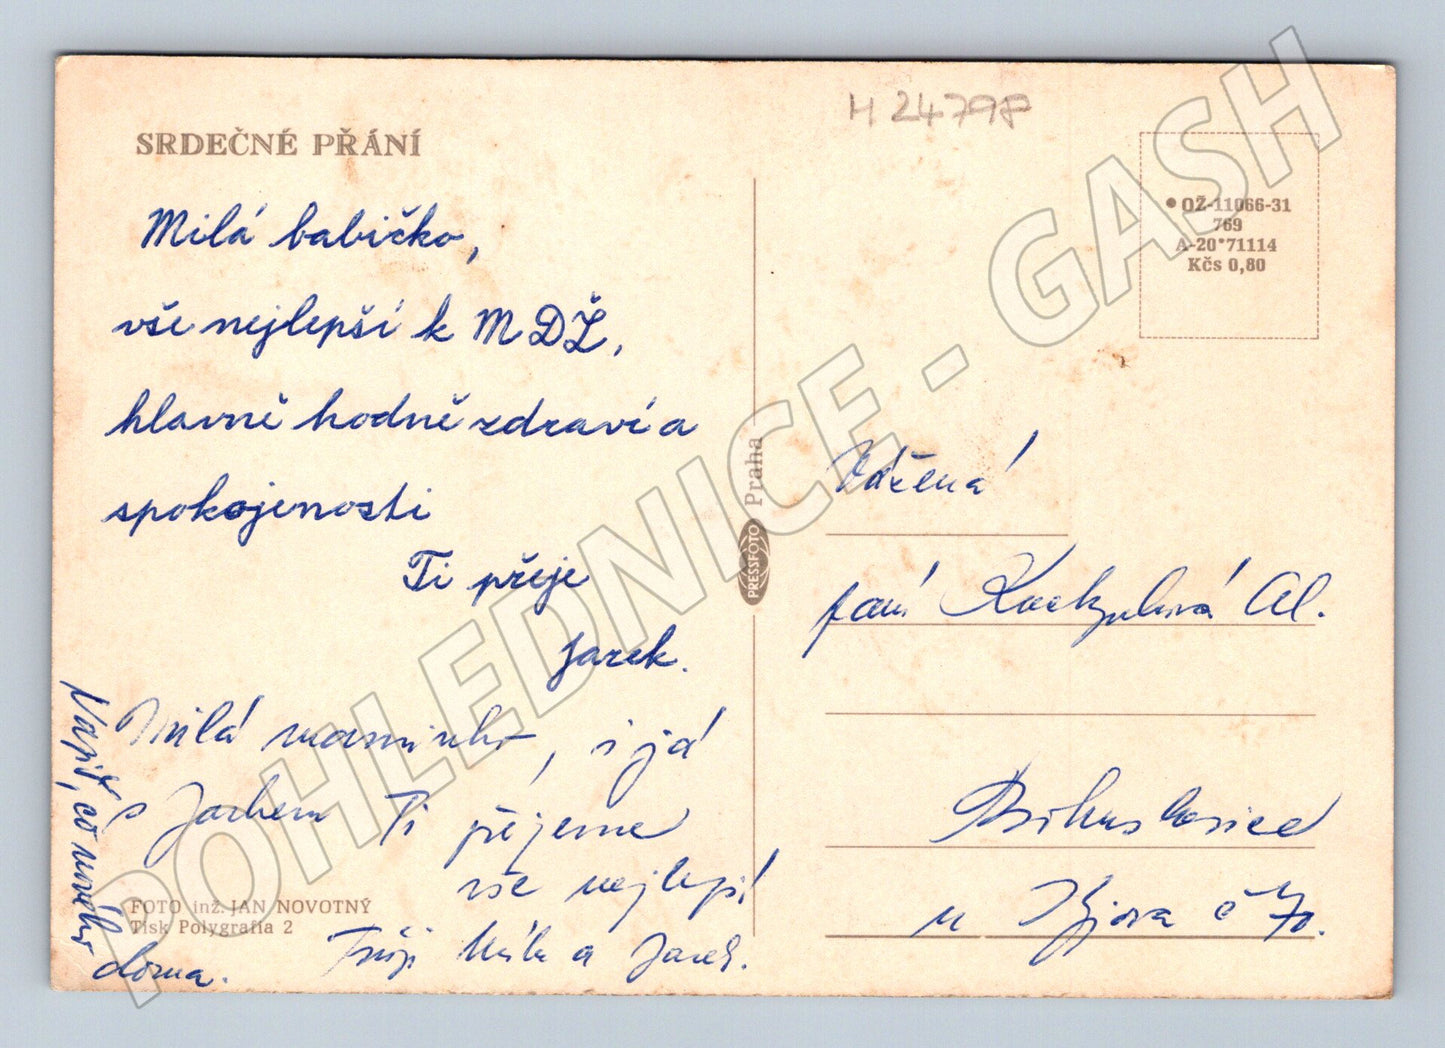 H 24798
SRDEČNÉ PŘÁNÍ
Milá babičko,
vše nejlepší k MDŽ,
hlavně hodně zdraví a
spokojenosti
Ti přeje
Jarek.
Milá maminko, i já
s Jarkem Ti přejeme
vše nejlepší
Tvoji Mila a Jarek.
Napiš, co nového
doma.
FOTO inž. JAN NOVOTNÝ
Tisk Polygrafia 2
PRESSFOTO Praha
• OŽ-11066-31
769
A-20*71114
Kčs 0,80
Vážená
paní Al.
Bohuslavice
u Kyjova č 70.
POHLEDNICE - GASH